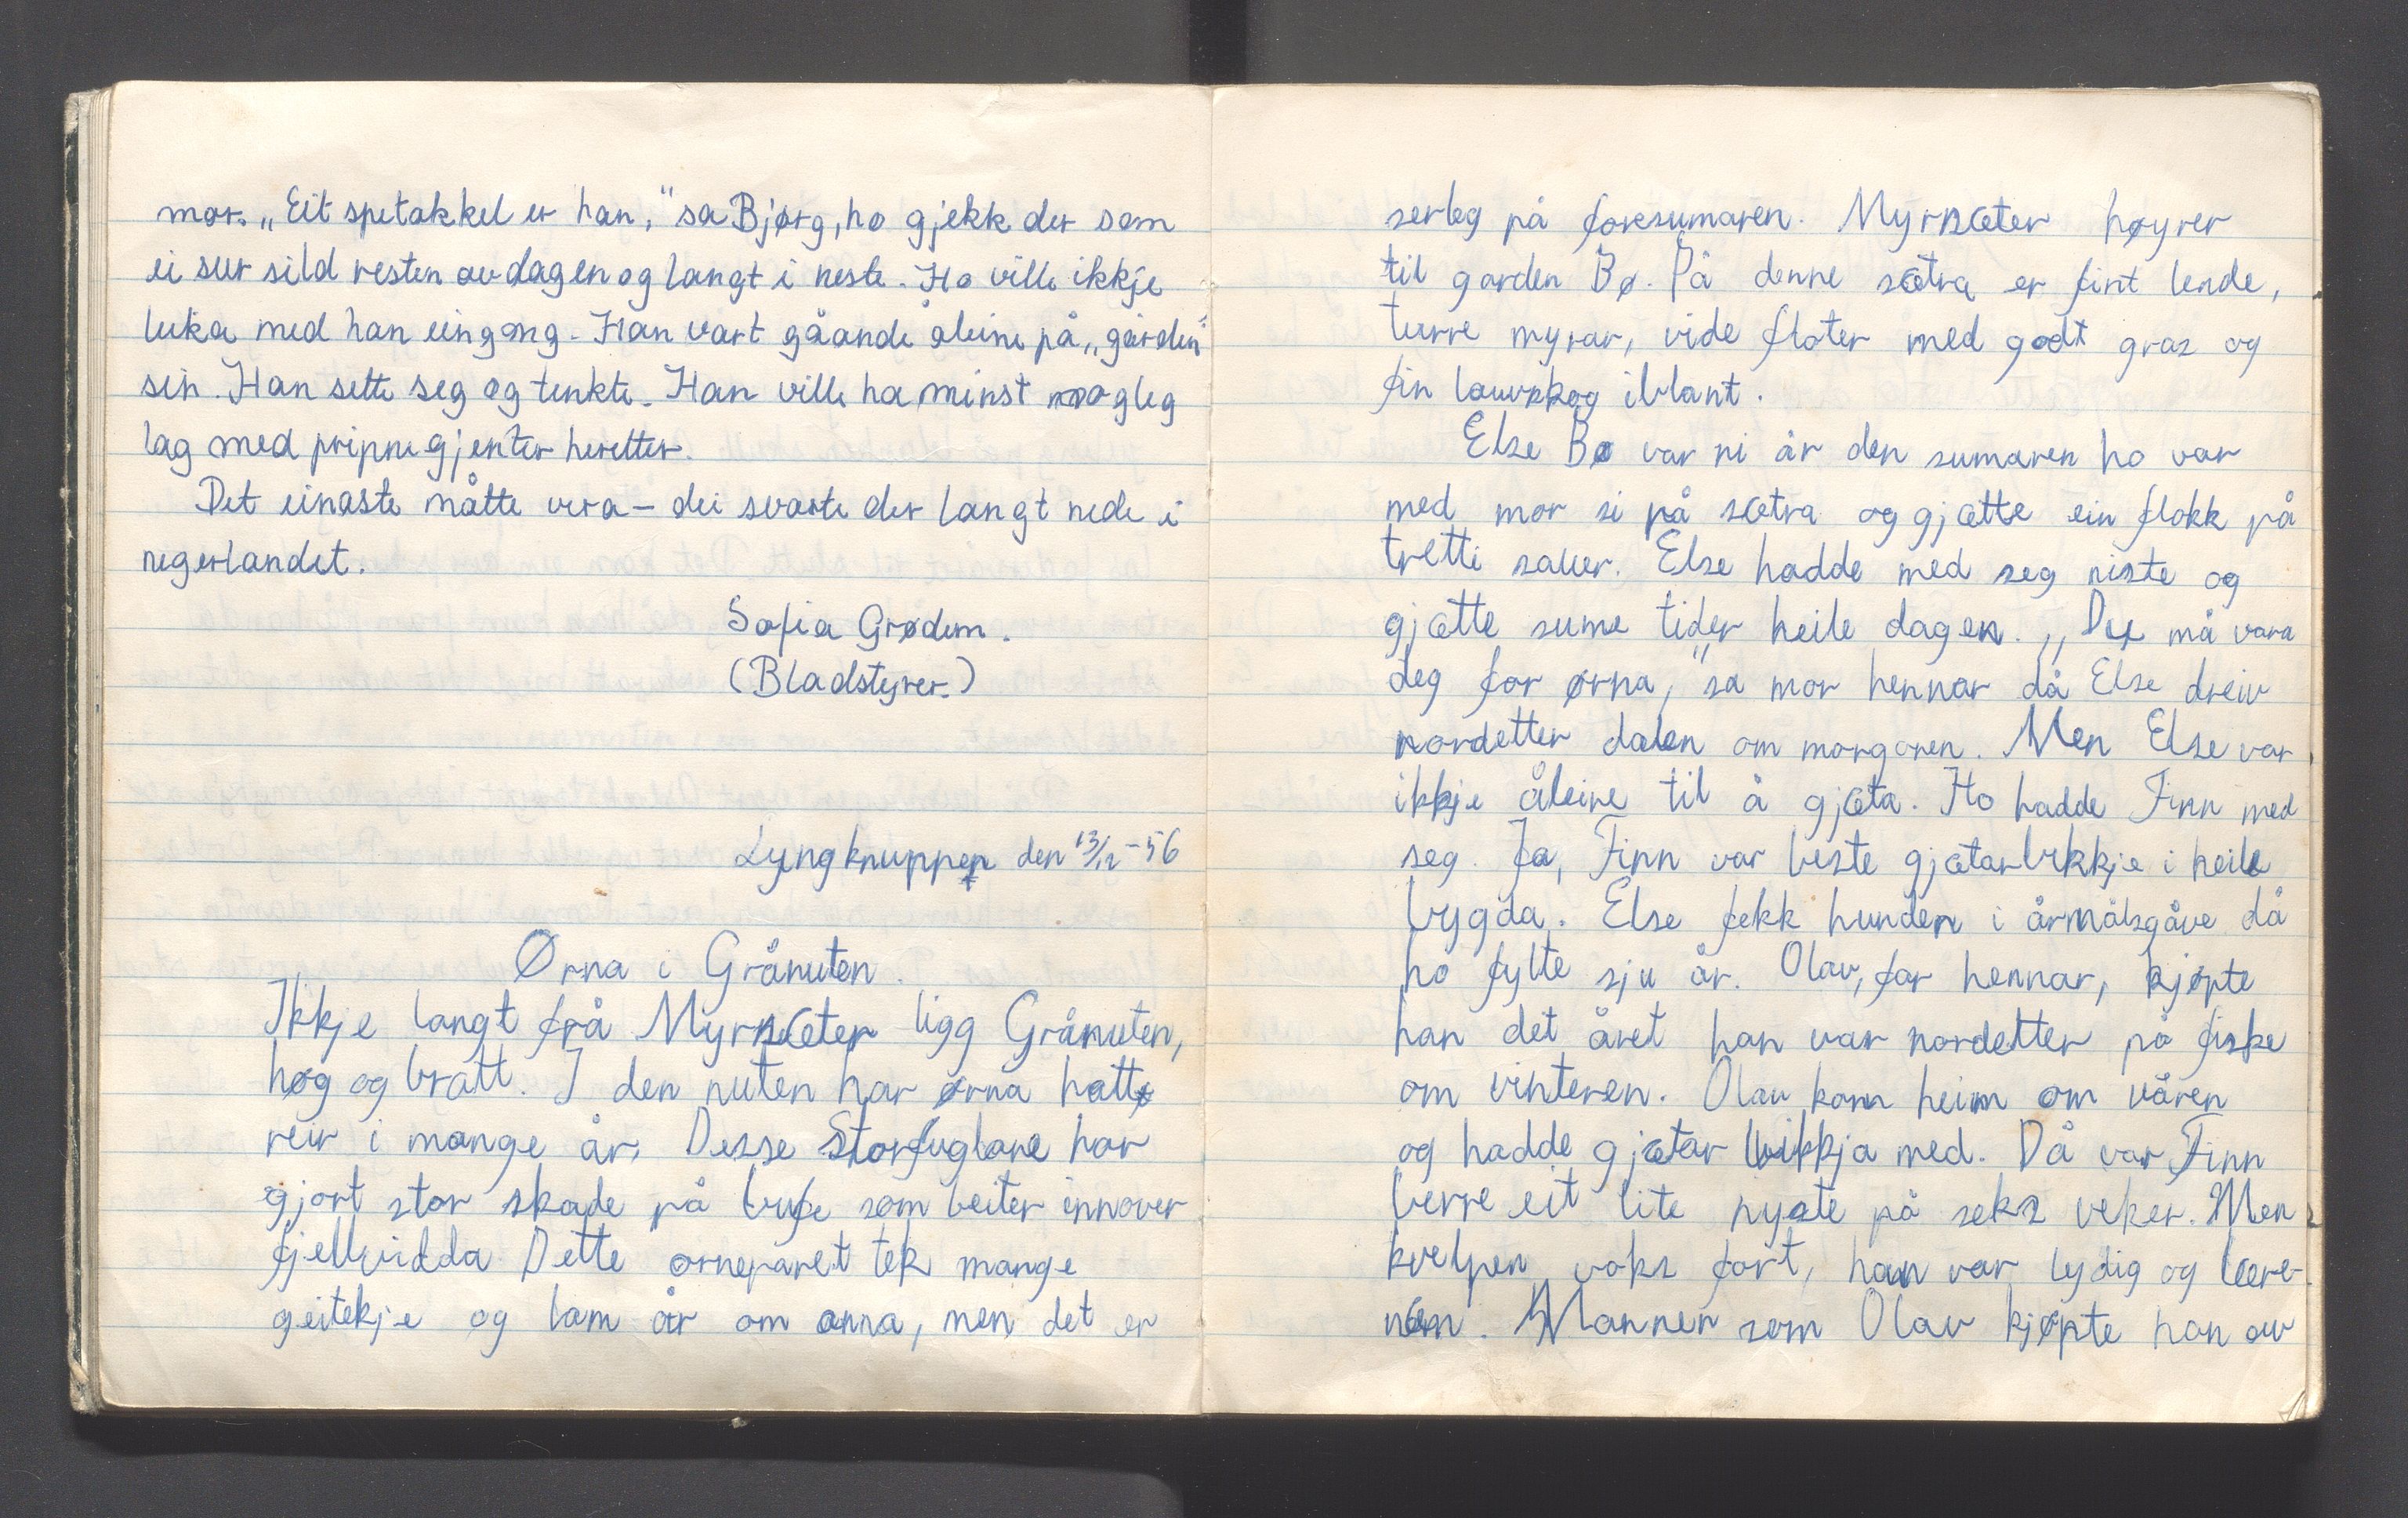 mor. „Eit spetakkel er han," sa Bjørg, ho gjekk der som
ei sur sild resten av dagen og langt i neste. Ho ville ikkje
leika med han eingong. Han vart gåande åleine på „garden"
sin. Han sette seg og tenkte. Han ville ha minst mogleg
lag med pripne gjenter heretter.
Det einaste måtte vera – dei svarte der langt nede i
negerlandet.
Sofia Grødem.
(Bladstyrer.)
Lyngknuppen den 13/12-56
Ørna i Grånuten.
Ikkje langt frå Myrsæter ligg Grånuten,
høg og bratt. I den nuten har ørna hatt
reir i mange år. Desse Storfuglane har
gjort stor skade på bufe som beiter innover
fjellvidda. Dette ørneparet tek mange
geitekje og lam år om anna, men det er
serleg på forsumaren. Myrsæter høyrer
til garden Bø. På denne sætra er fint lende,
turre myrar, vide flater med godt gras og
fin lauvskog iblant.
Else Bø var ni år den sumaren ho var
med mor si på sætra og gjætte ein flokk på
tretti sauer. Else hadde med seg niste og
gjætte sume tider heile dagen. „Du må vara
deg for ørna," sa mor hennar då Else dreiv
nordetter dalen om morgonen. Men Else var
ikkje åleine til å gjæta. Ho hadde Finn med
seg. Ja, Finn var beste gjætarbikkje i heile
bygda. Else fekk hunden i årmålsgåve då
ho fylte sju år. Olav, far hennar, kjøpte
han det året han var nordetter på fiske
om vinteren. Olav kom heim om våren
og hadde gjætar bikkja med. Då var Finn
berre eit lite nyste på seks veker. Men
kvelpen voks fort, han var lydig og lære-
næm. Mannen som Olav kjøpte han av